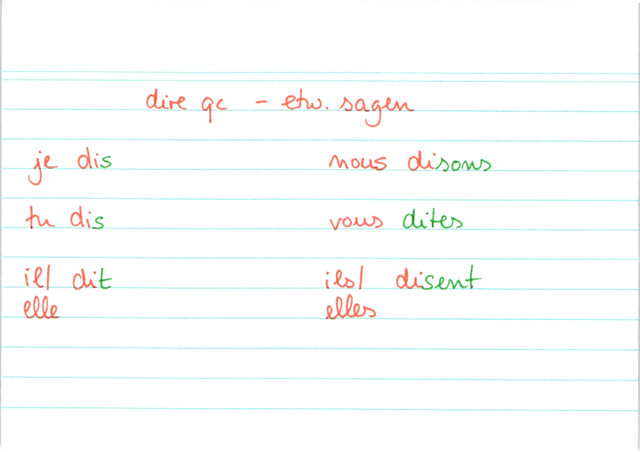 dire qc - etw. sagen
je dis nous disons
tu dis vous dites
il/ dit ils/ disent
elle elles